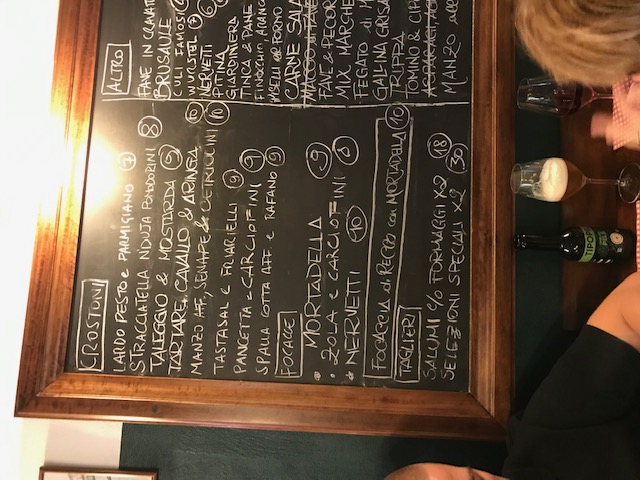 CROSTONI
LARDO PESTO E PARMIGIANO 7
STRACCIATELLA NDUJA POMODORINI 8
TALEGGIO & MOSTARDA 9
TARTARE CAVALLO & ARINGA 10
MANZO AFF, SENAPE & CETRIOLINI 10
TASTASAL E FINFERLI 9
PANCETTA E CARCIOFINI 9
SPALLA COTTA AFF. E RAFANO 9
FOCACE
MORTADELLA 9
ZOLA E CARCIOFINI 8
NERVETTI 10
FOCACCIA DI RECCO CON MORTADELLA 10
TAGLIERI
SALUMI E/O FORMAGGI X2 18
SELEZIONI SPECIALI X2 30
ALTRO
FAVE IN CRAVATT
BRUSAULE
CULI FAMOS
WURSTEL 7
NERVETTI 6
PITINA
GIARDINIERA
TINCA & PANE
FINOCCHIO ARANC
PISELLI AL FORNO
CARNE SAL
FAVE & PECOR
MIX MARGHE
FEGATO DI
GALLINA GRIG
TRIPPA
TOMINO & CIP
MANZO ALL
TIPO